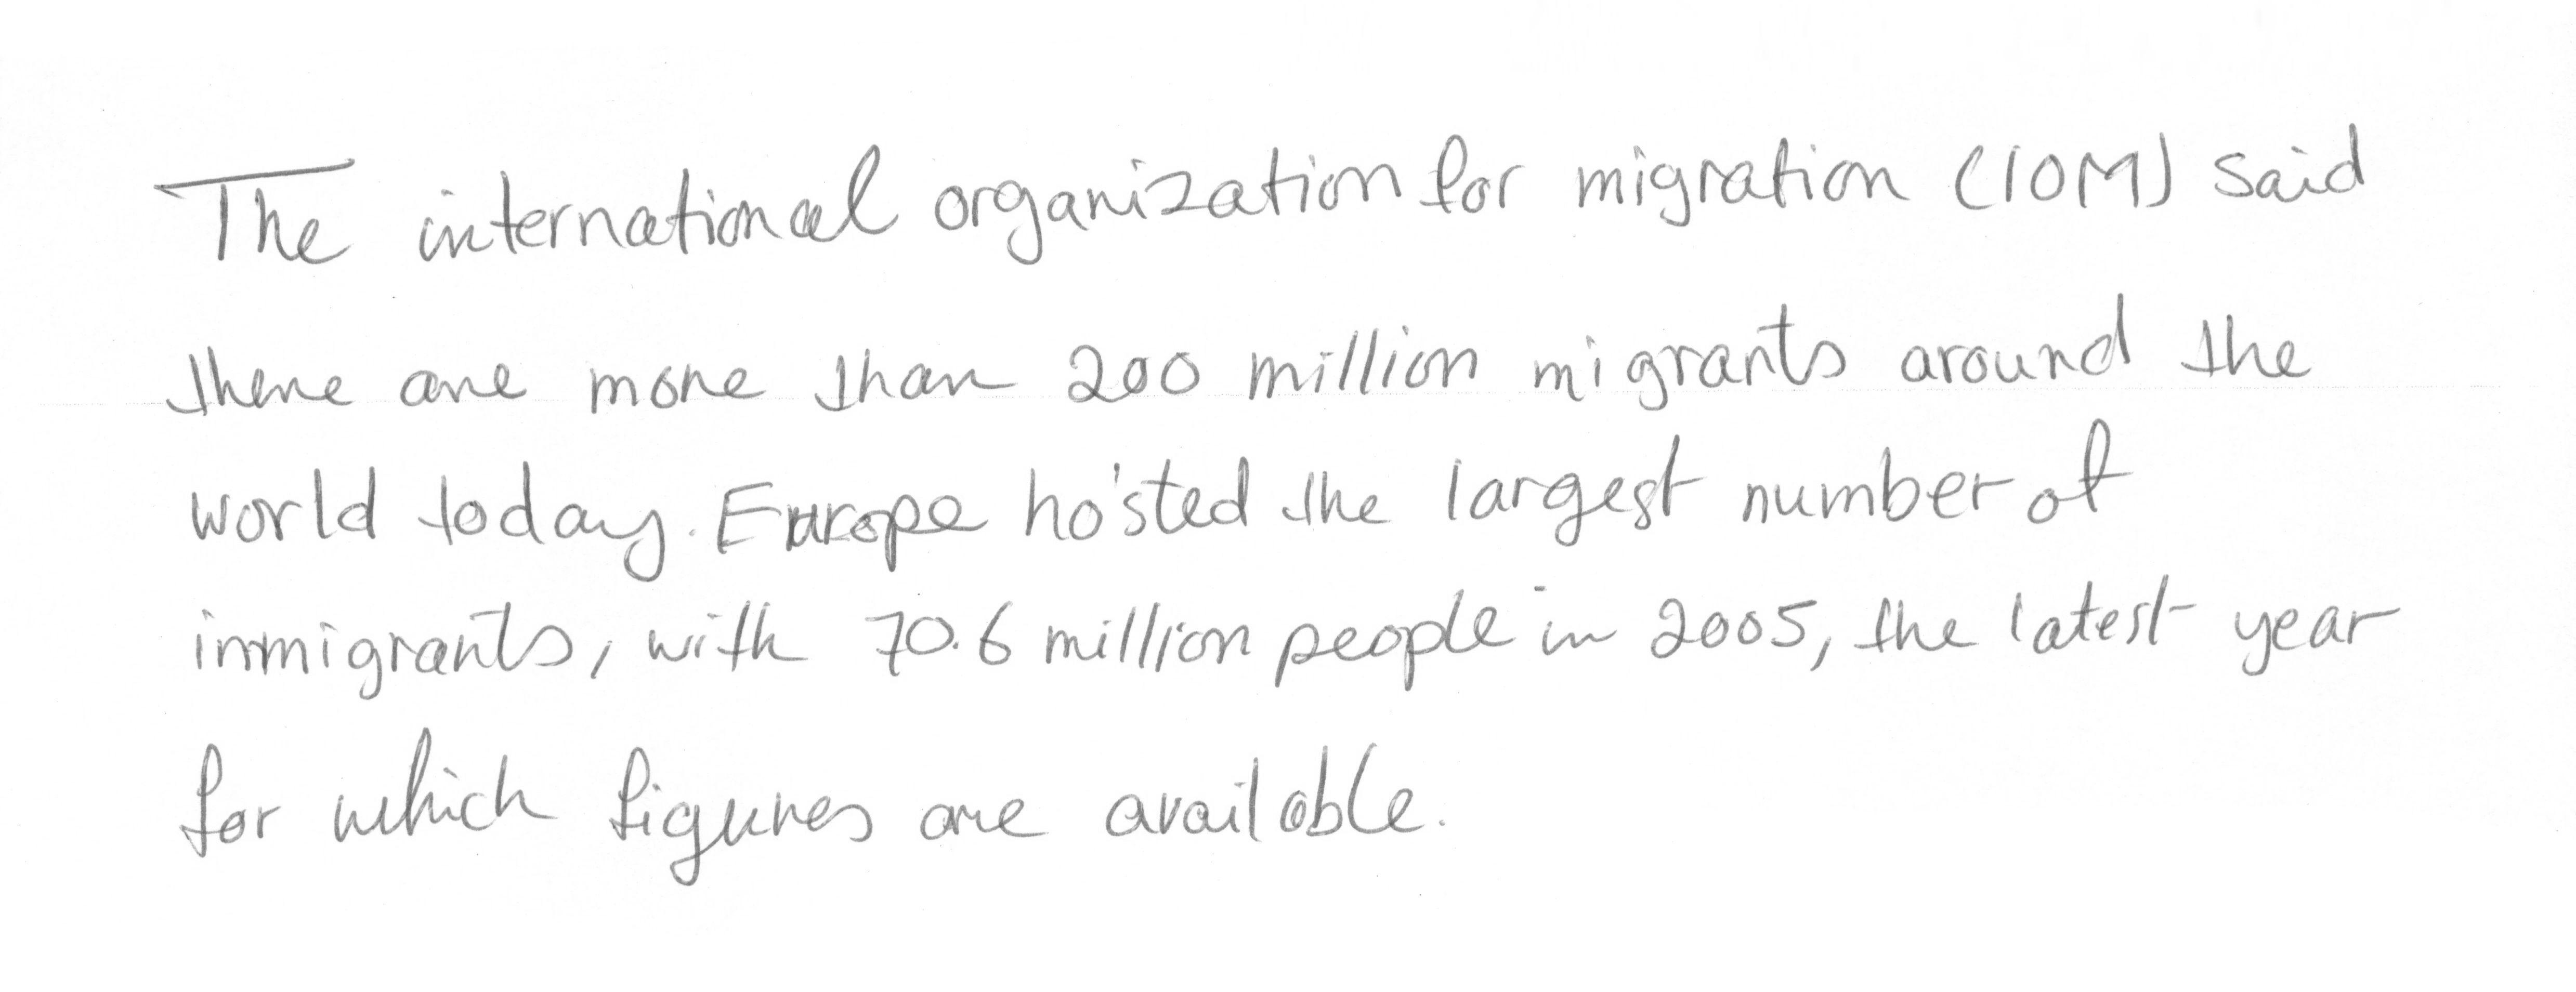 The international organization for migration (IOM) said
there are more than 200 million migrants around the
world today. Europe hosted the largest number of
immigrants, with 70.6 million people in 2005, the latest year
for which figures are available.